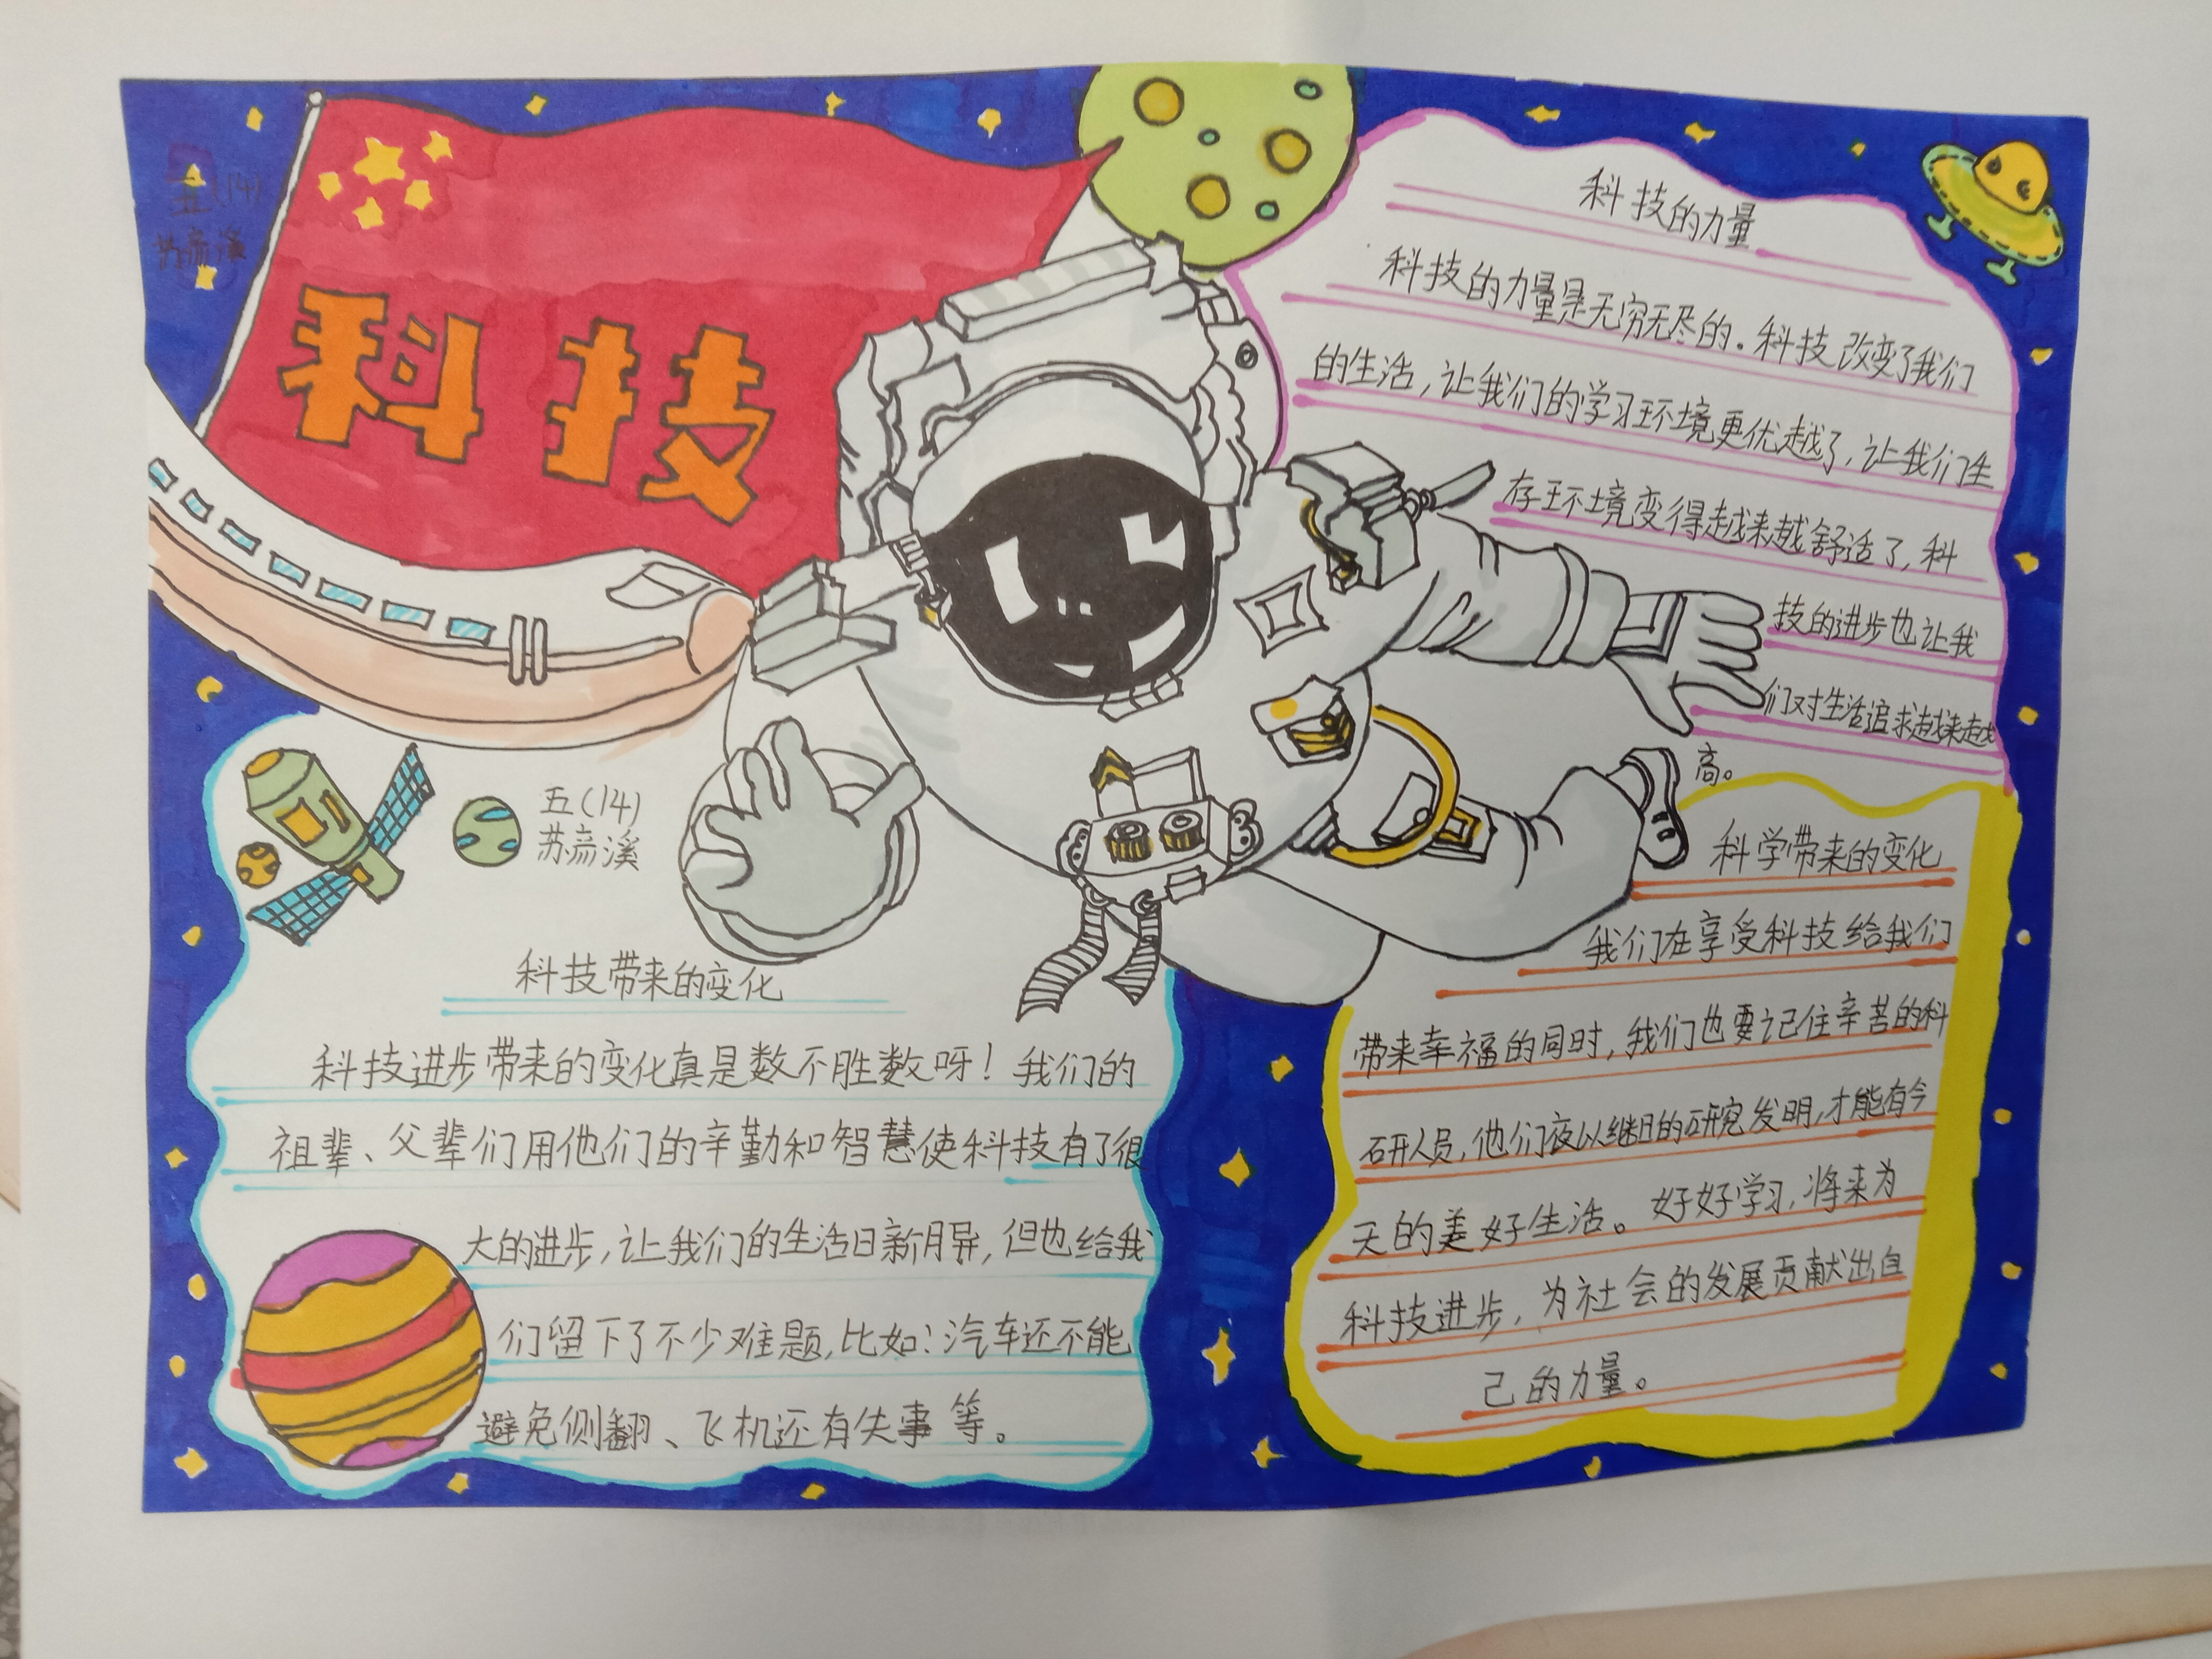 科技
五(14)
五(14)
苏斋溪
科技带来的变化
科技进步带来的变化真是数不胜数呀！我们的
祖辈、父辈们用他们的辛勤和智慧使科技有了很
大的进步，让我们的生活日新月异，但也给我
们留下了不少难题，比如：汽车还不能
避免侧翻、飞机还有失事等。
科技的力量
科技的力量是无穷无尽的．科技改变了我们
的生活，让我们的学习环境更优越了，让我们生
存环境变得越来越舒适了，科
技的进步也让我
们对生活追求越来越
高。
科学带来的变化
我们在享受科技给我们
带来幸福的同时，我们也要记住辛苦的科
研人员，他们夜以继日的研究发明，才能有今
天的美好生活。好好学习，将来为
科技进步，为社会的发展贡献出自
己的力量。